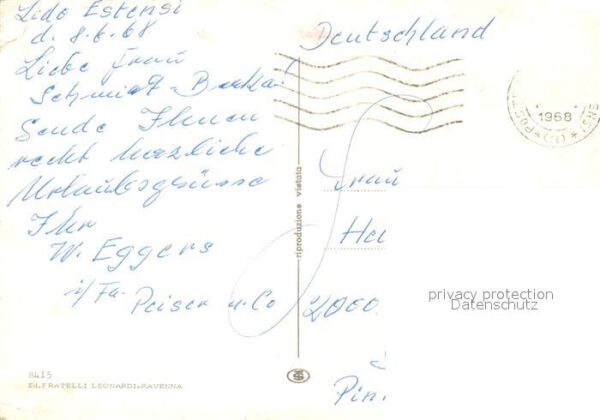 Lido Estensi
d. 8.6.68
Liebe Frau
Schmidt-
Sende Ihnen
recht herzliche
Urlaubsgrüsse
Ihr
W. Eggers
i/Fa.
Peiser u. Co
8415
Ed. FRATELLI LEONARDI-RAVENNA
riproduzione vietata
Deutschland
1968
Frau
Hei
2000
Pin
privacy protection
Datenschutz